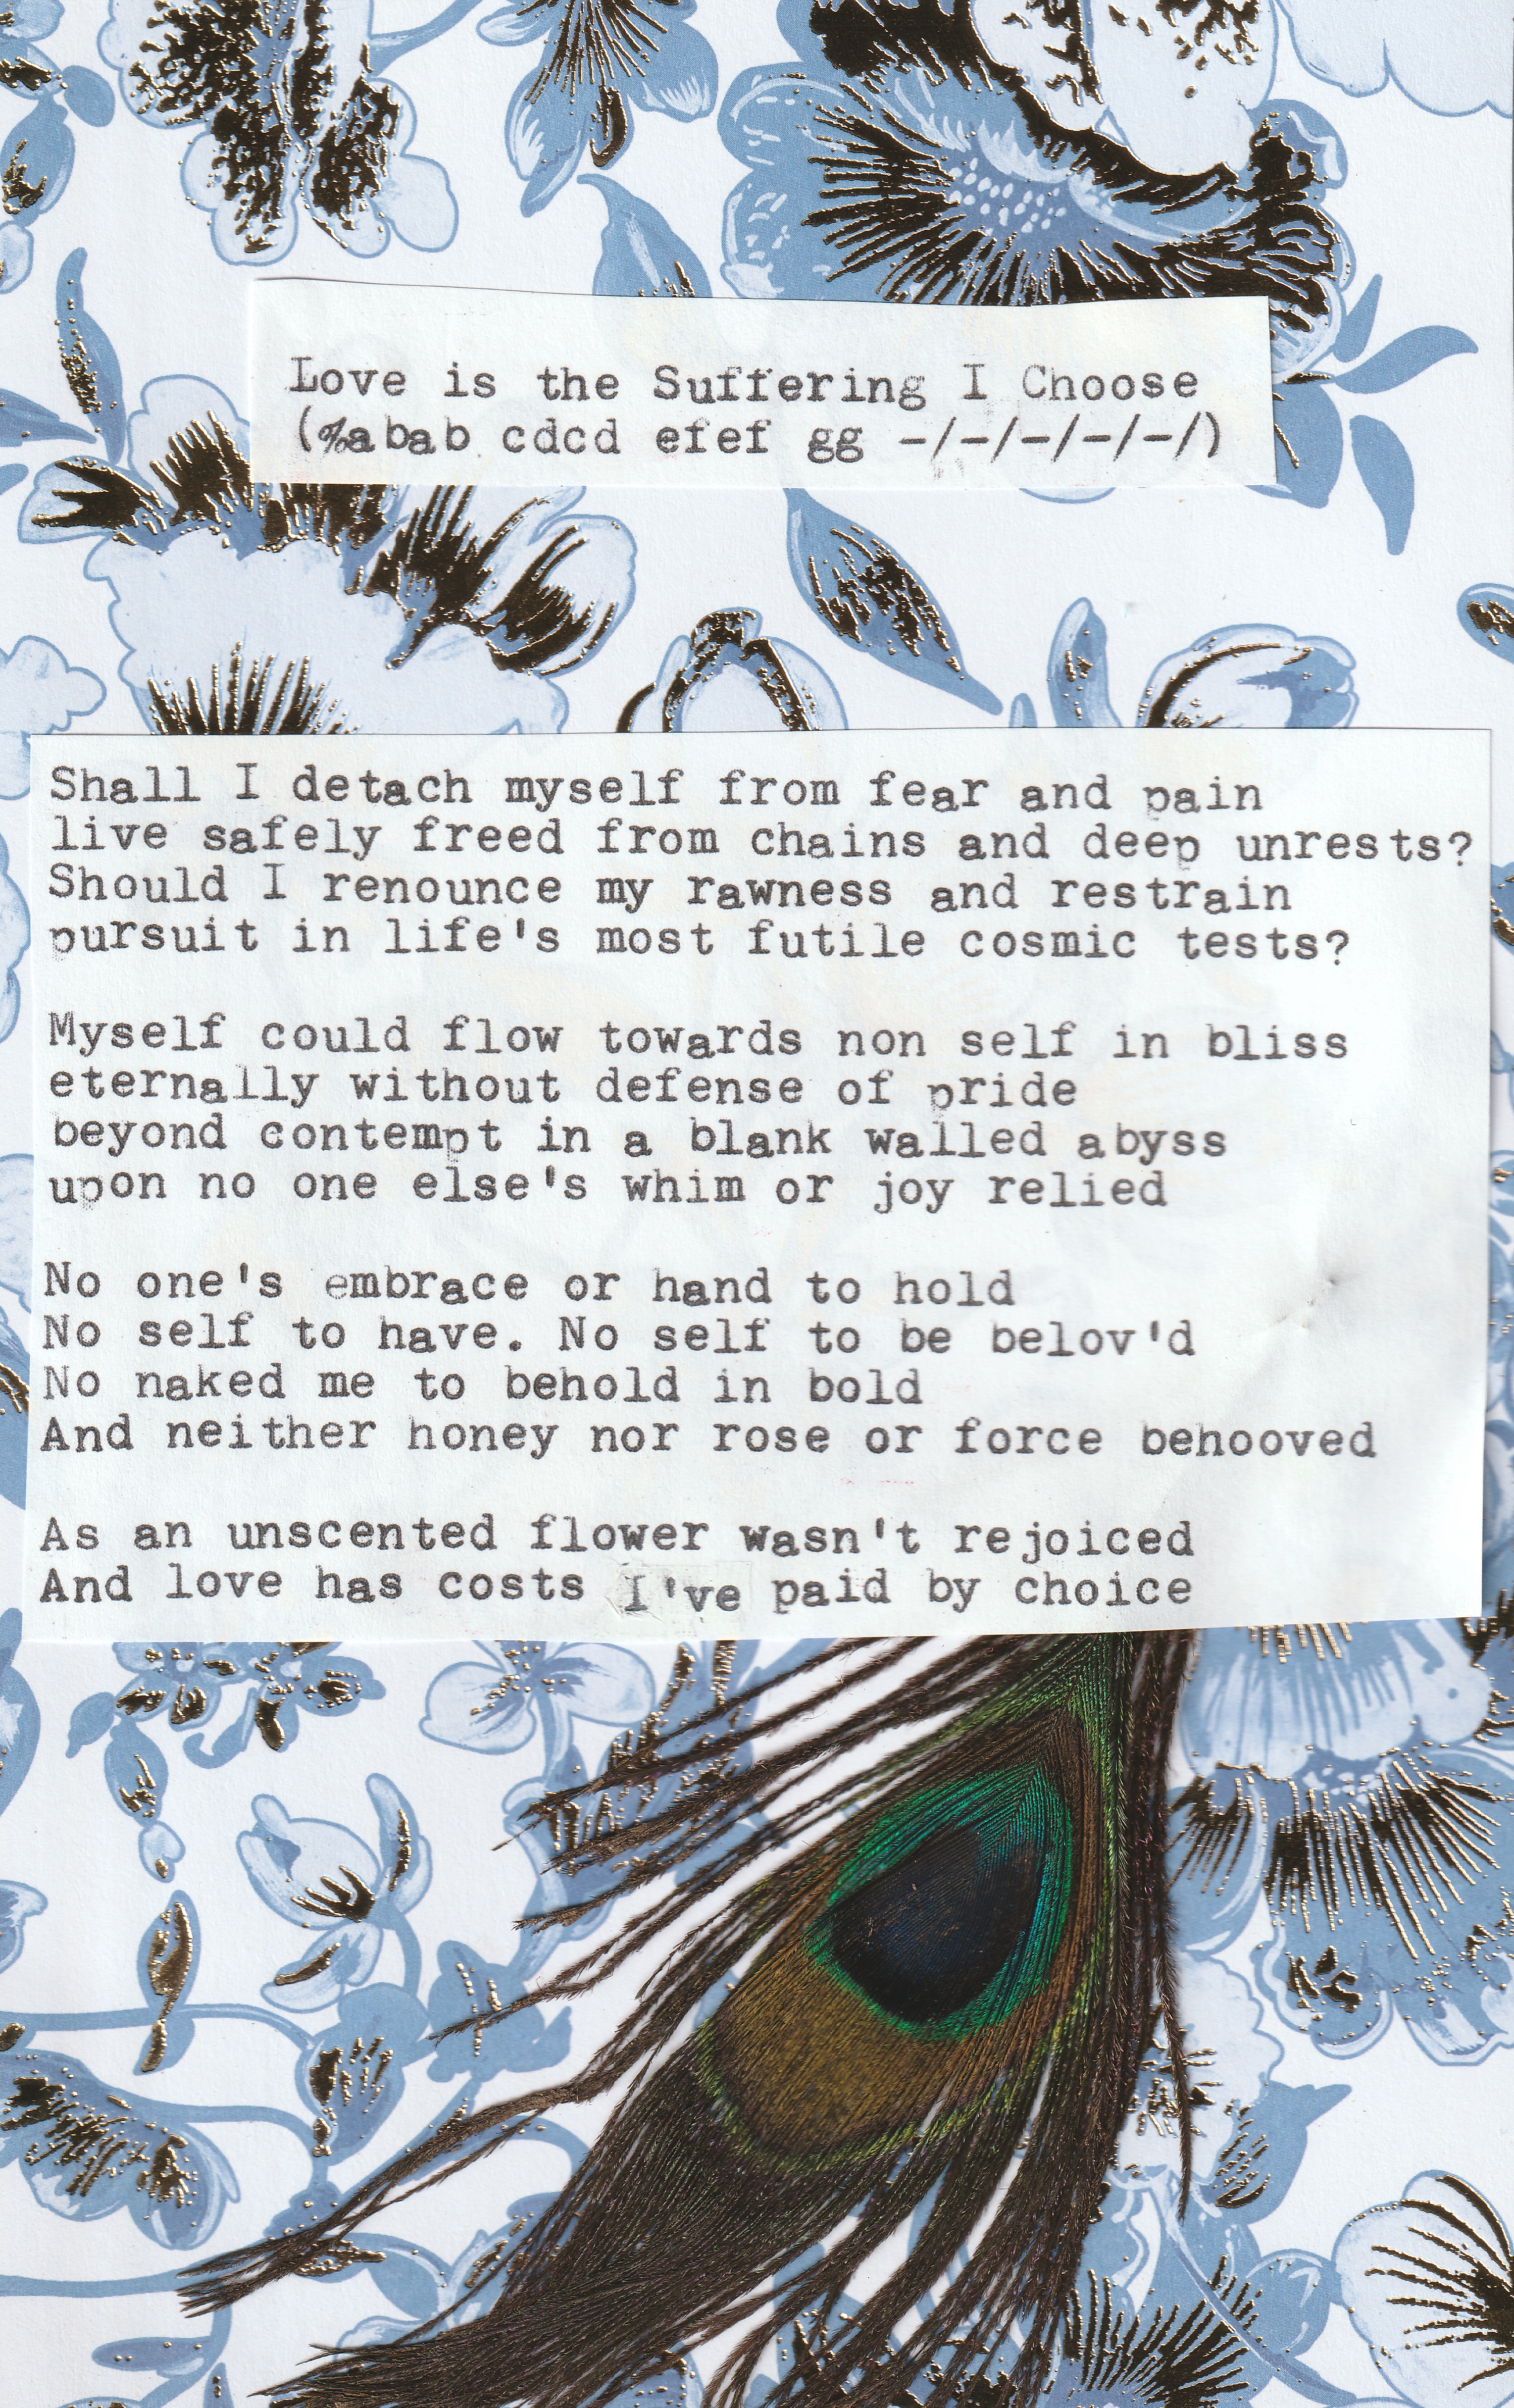 Love is the Suffering I Choose
(%abab cdcd efef gg -/-/-/-/-/)
Shall I detach myself from fear and pain
live safely freed from chains and deep unrests?
Should I renounce my rawness and restrain
pursuit in life's most futile cosmic tests?
Myself could flow towards non self in bliss
eternally without defense of pride
beyond contempt in a blank walled abyss
upon no one else's whim or joy relied
No one's embrace or hand to hold
No self to have. No self to be belov'd
No naked me to behold in bold
And neither honey nor rose or force behooved
As an unscented flower wasn't rejoiced
And love has costs I've paid by choice